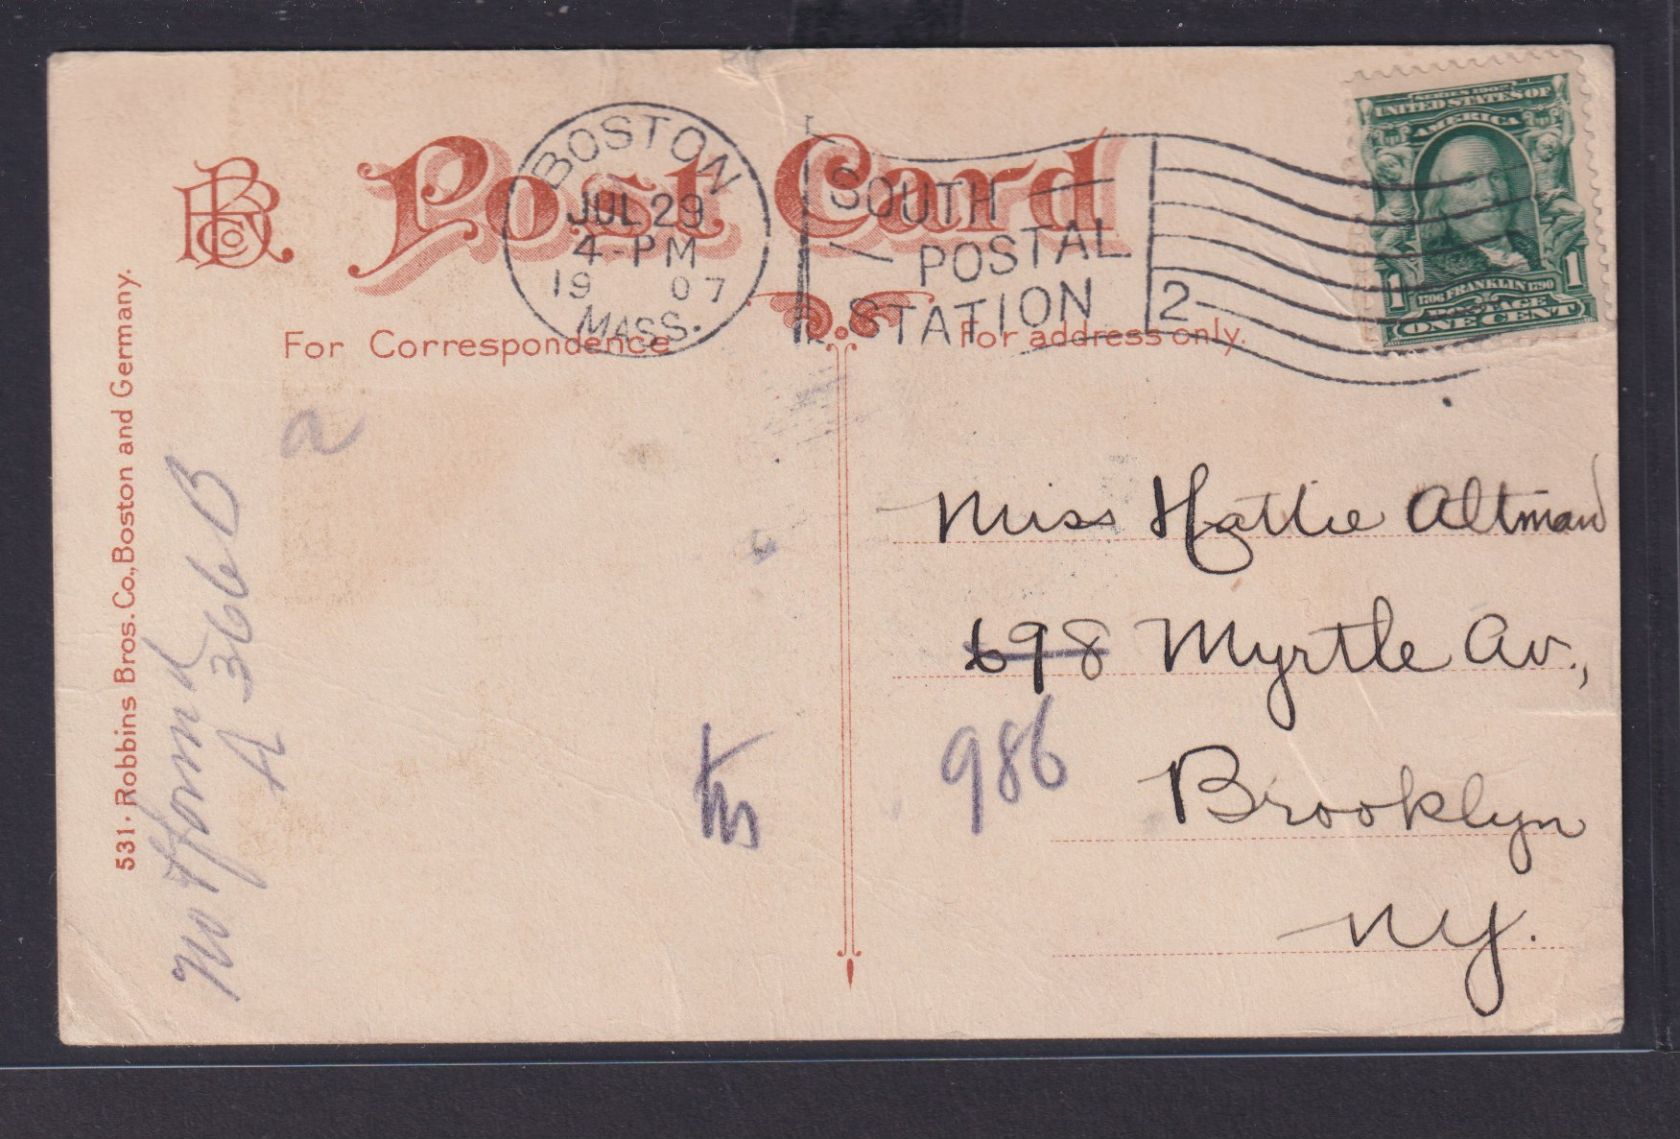 Post Card
BOSTON
JUL 29
4-PM
1907
MASS.
SOUTH
POSTAL
STATION
2
SERIES 1902
UNITED STATES OF
AMERICA
1706 FRANKLIN 1790
POSTAGE
1 1
ONE CENT
For Correspondence
For address only.
531. Robbins Bros. Co., Boston and Germany.
Not found
A 366 B
a
Miss Hattie Altman
698 Myrtle Av.,
986
Brooklyn
NY.